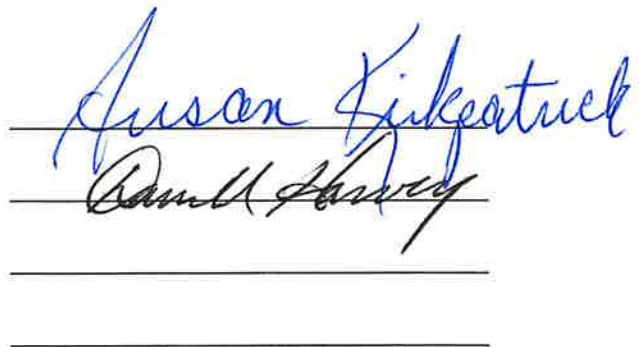 Susan Kirkpatrick
Darrell Harvey